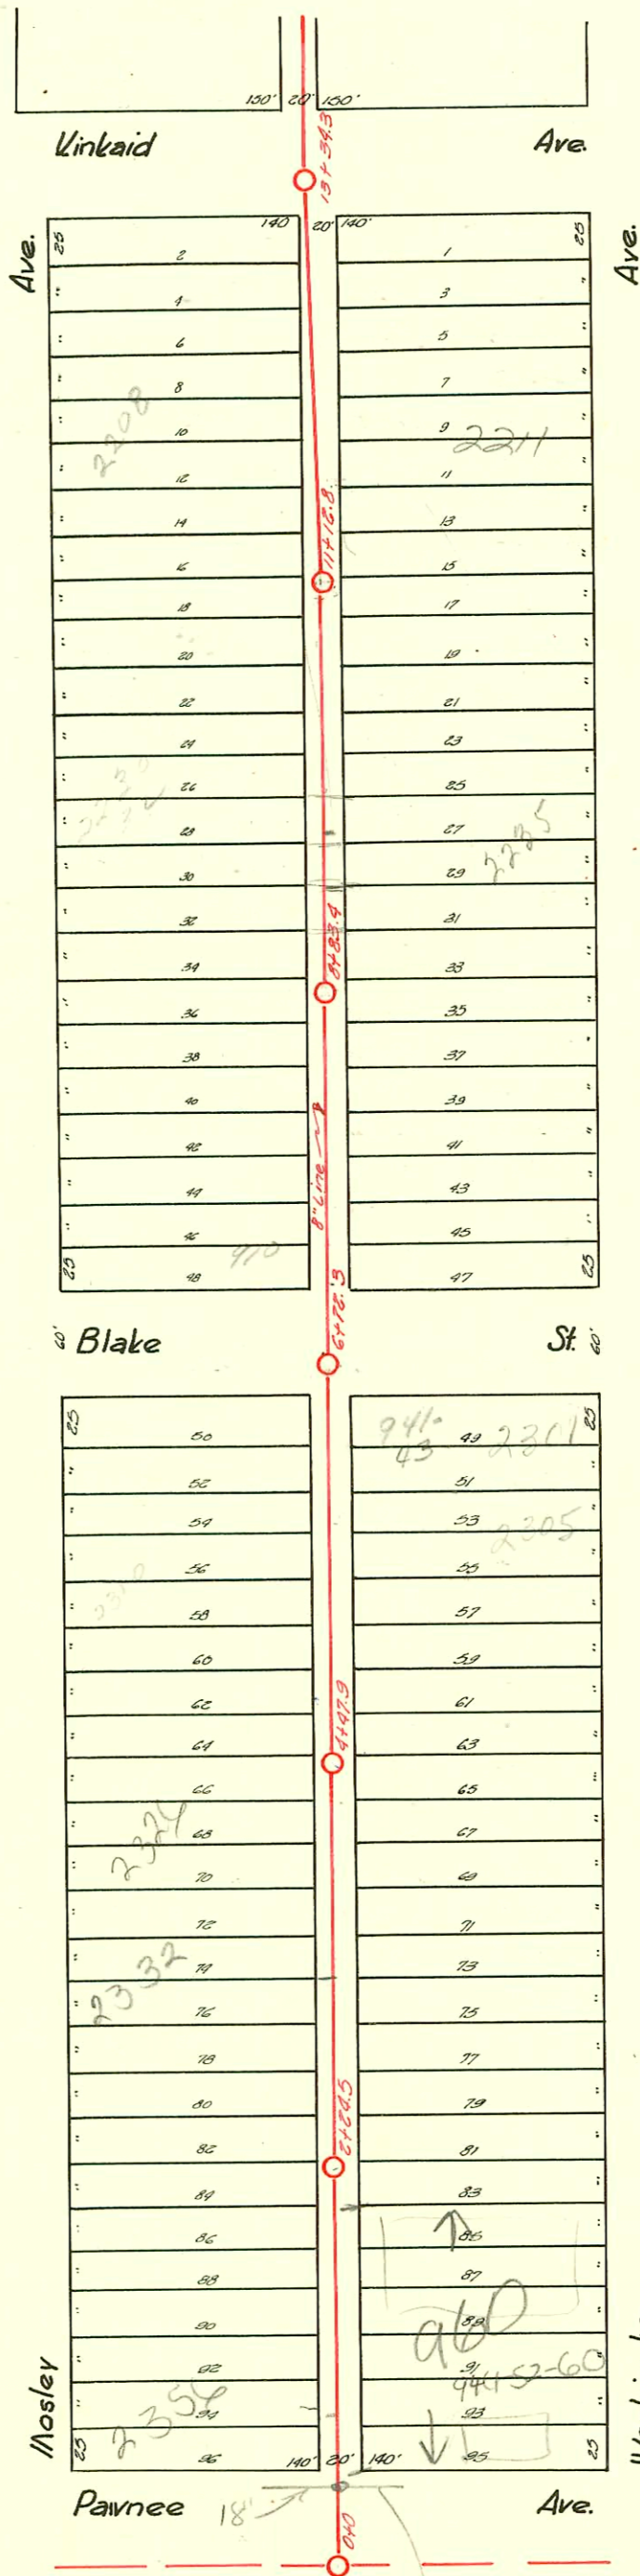 150' 20' 150'
Kinkaid Ave.
13+34.3
Ave. Ave.
25 140 20' 140' 25
2 1
" 4 3 "
" 6 5 "
" 8 7 "
2208
" 10 9 "
2211
" 12 11 "
" 14 13 "
11+12.8
" 16 15 "
" 18 17 "
" 20 19 "
" 22 21 "
" 24 23 "
" 26 25 "
" 28 27 "
2235
" 30 29 "
" 32 31 "
8+83.4
" 34 33 "
" 36 35 "
" 38 37 "
" 40 39 "
" 42 41 "
8" Line
" 44 43 "
" 46 45 "
910
25 48 47 25
6+72.3
60' Blake St. 60'
25 50 49 25
941-
43
2301
" 52 51 "
" 54 53 "
2305
" 56 55 "
2310
" 58 57 "
" 60 59 "
" 62 61 "
4+47.9
" 64 63 "
" 66 65 "
" 68 67 "
2324
" 70 69 "
" 72 71 "
" 74 73 "
2332
" 76 75 "
" 78 77 "
" 80 79 "
2+24.5
" 82 81 "
" 84 83 "
" 86 85 "
" 88 87 "
" 90 89 "
960
" 92 91 "
944-52-60
" 94 93 "
2356
25 96 140' 20' 140' 95 25
Mosley
Pawnee Ave.
18"
0+0